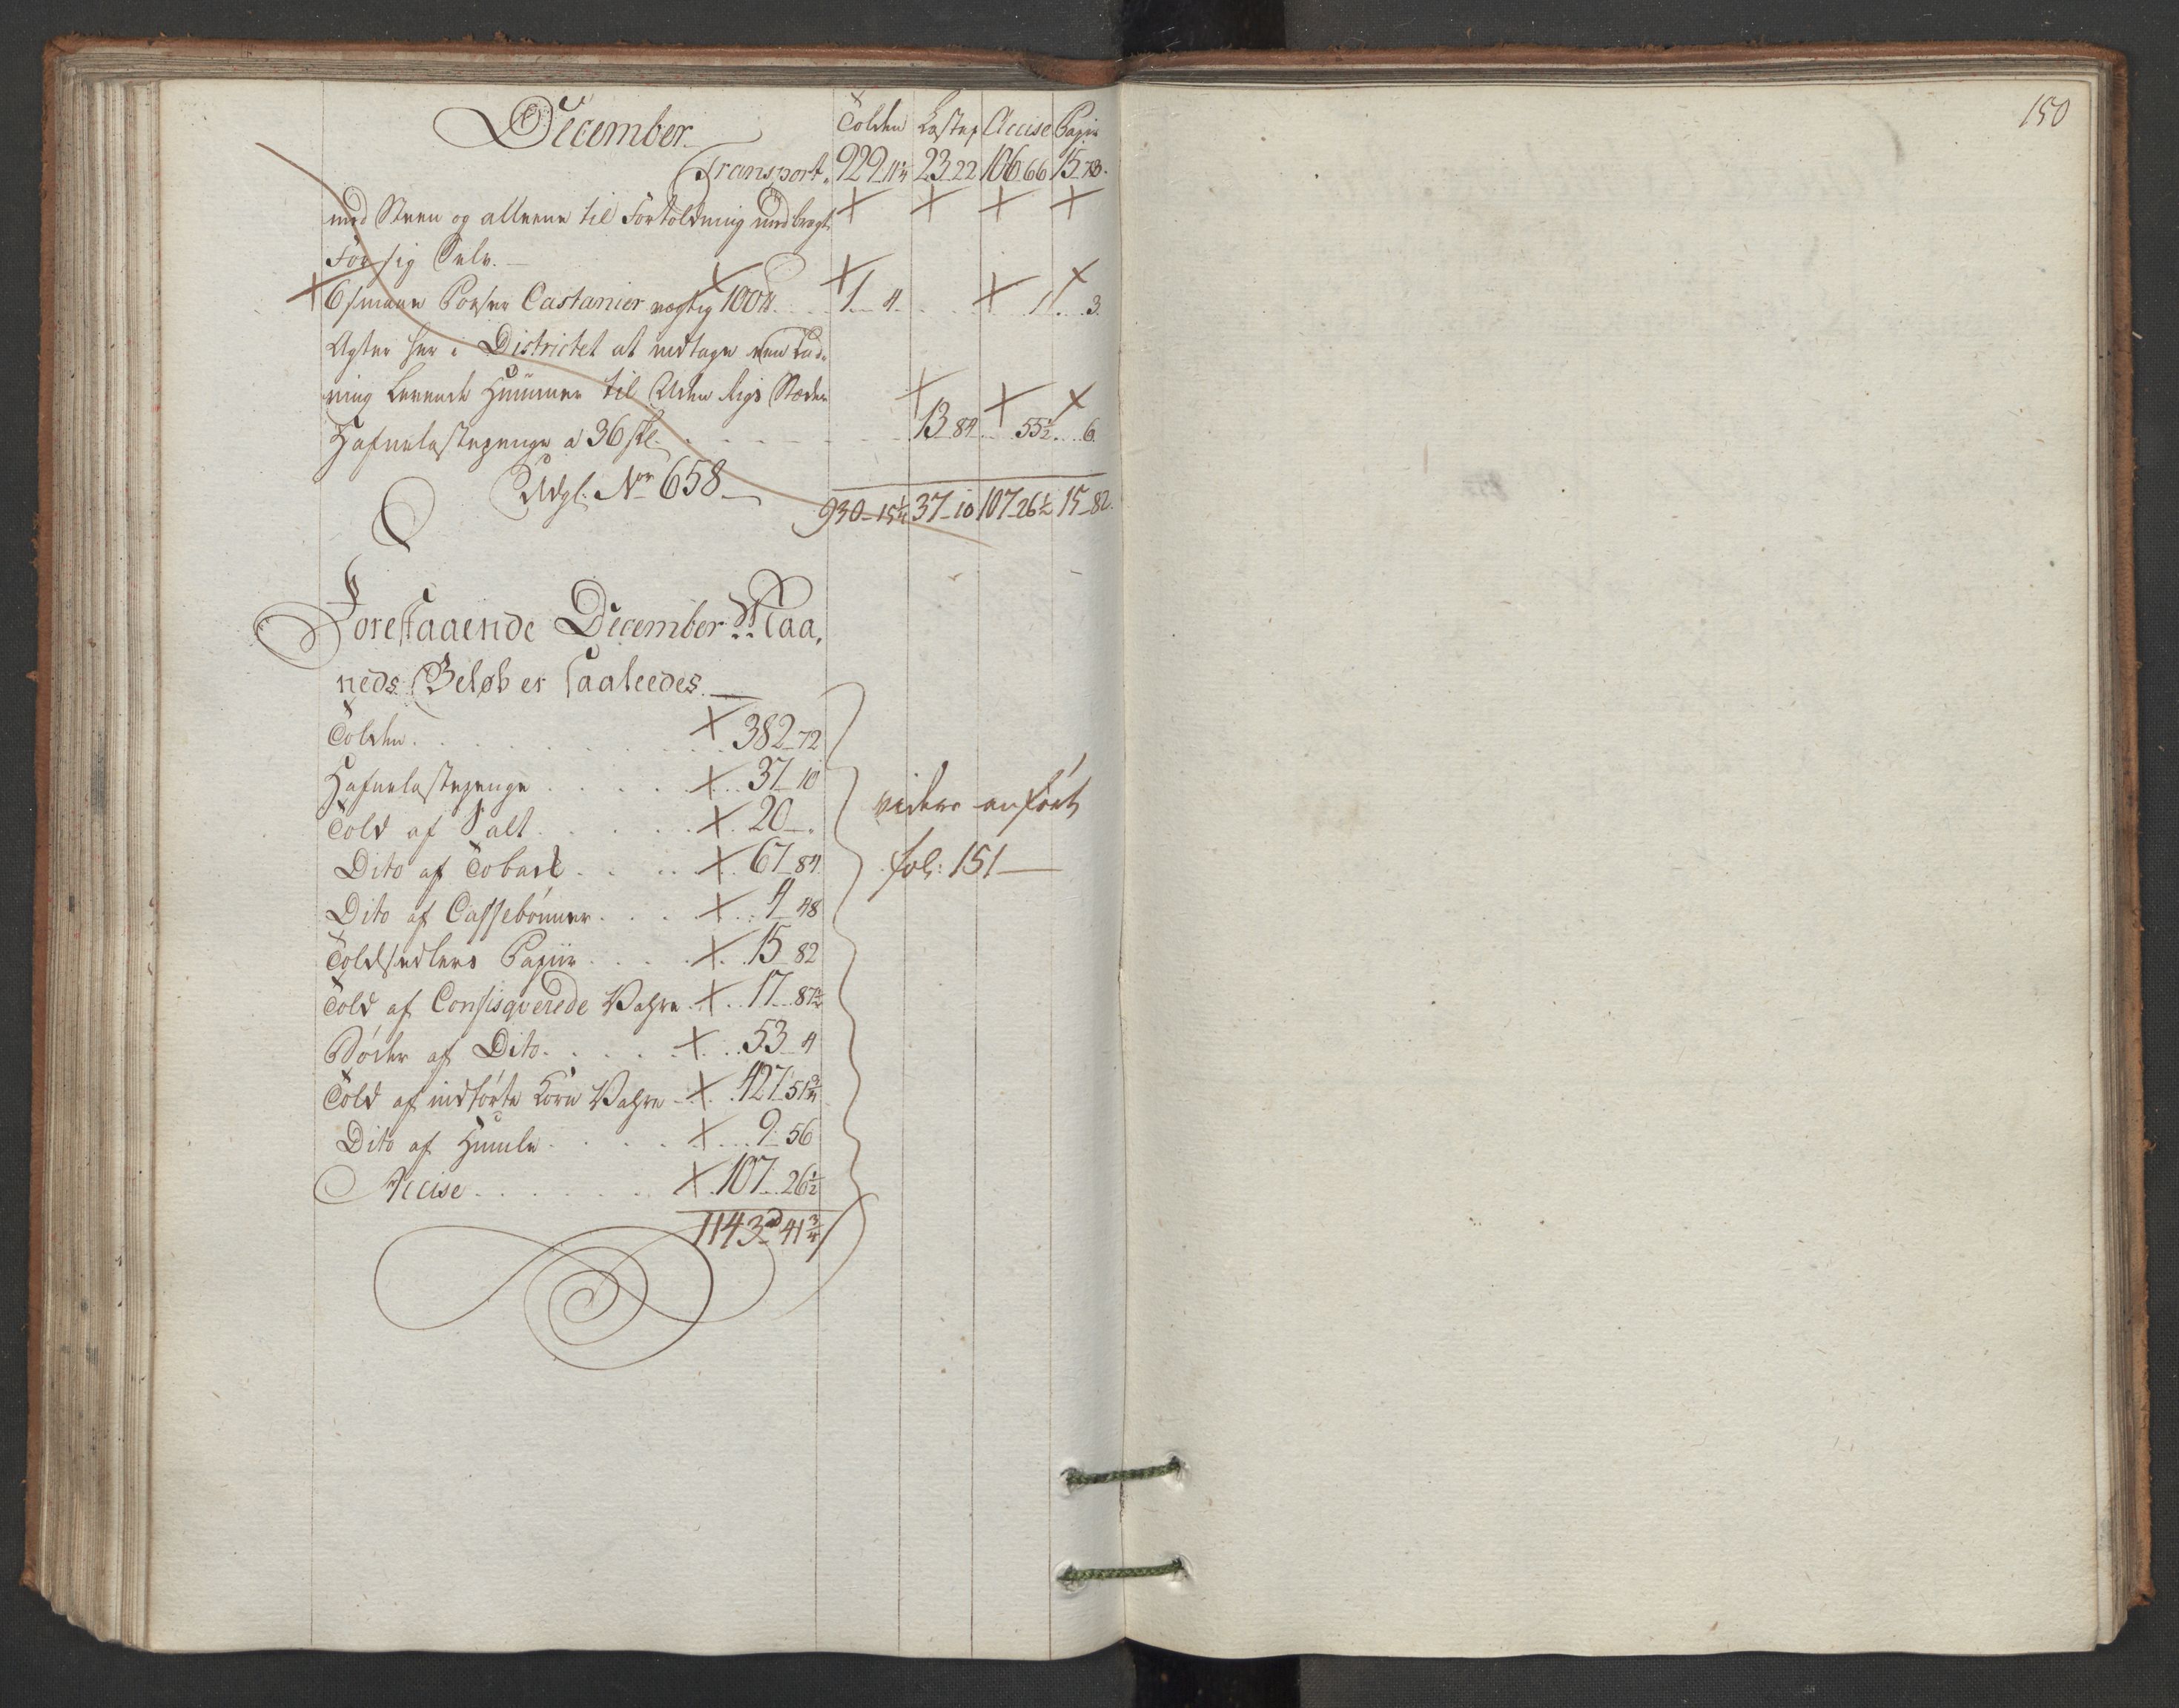 December Tolden Lastep Accise Papiir
Transport. 929 11¼ 23 22 106 66 15 73.
med Steen og alleene til Fortoldning medbragt
For sig Selv.
6 smaae Poser Castanier vægtig 100 ℔ 1 4 1 3
Agter her i Districtet at indtage een Lad-
ning Levende Hummer til Uden Rigs Stæder
Hafnelastepenge a 36 sk. 13 84 55½ 6
Udgl: No 658
930 15¼ 37 10 107 26½ 15 82.
Forestaaende December Maa-
neds Beløb er saaleedes.
Tolden 382 72
Hafnelastepenge 37 10
Told af Salt 20
Dito af Toback 67 84
Dito af Caffebönner 4 48
Toldsedlers Papiir 15 82
Told af Confisqverede Vahre 17 87½
Böder af Dito 53 4
Told af indförte Korn Vahre 427 51¾
Dito af Humle 9 56
Accise 107 26½
1143 rd 41¾
videre anfört
fol: 151
150